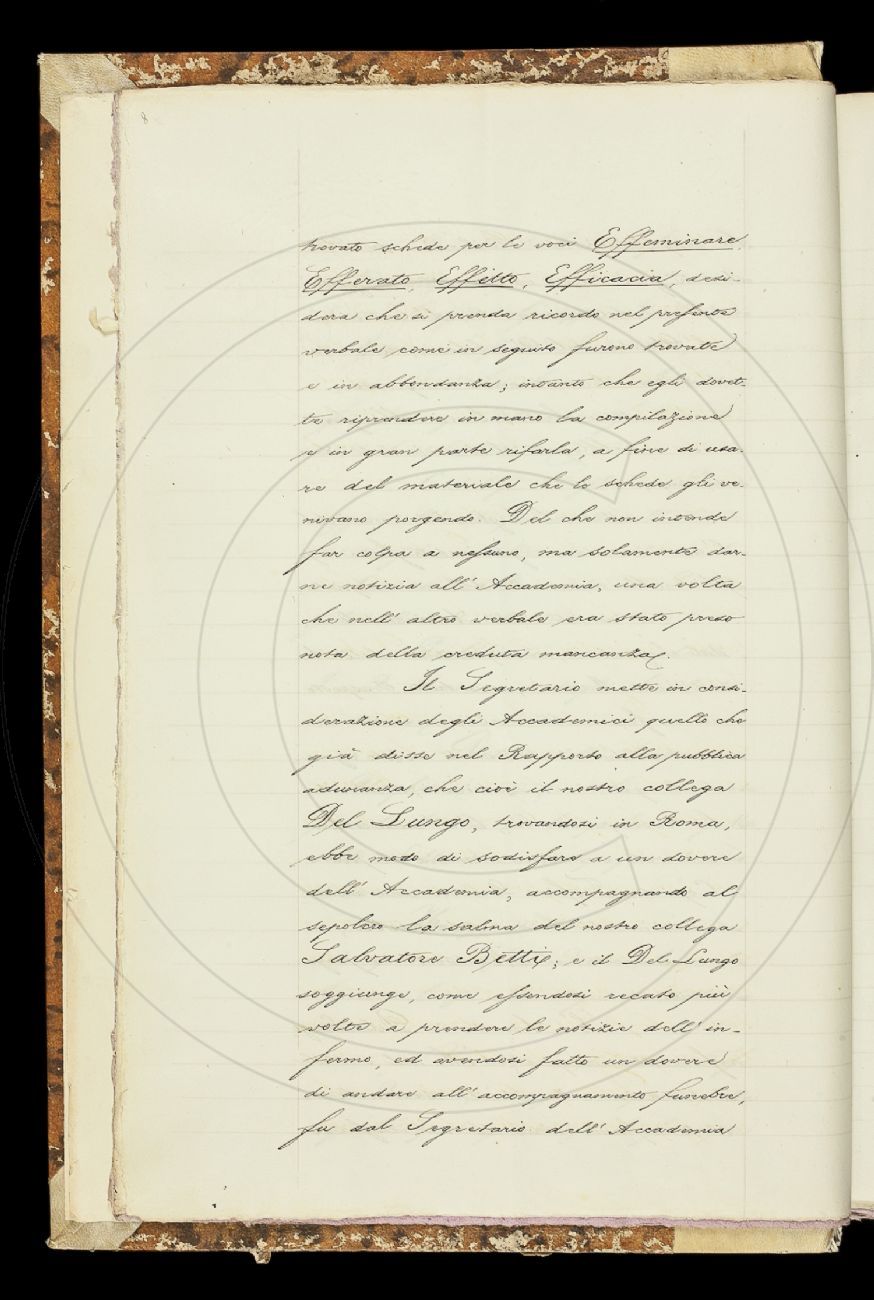 8
trovato schede per le voci Effeminare,
Efferato, Effetto, Efficacia, desi-
dera che si prenda ricordo nel presente
verbale come in seguito furono trovate
e in abbondanza; intanto che egli dovet-
te riprendere in mano la compilazione
e in gran parte rifarla, a fine di usa-
re del materiale che le schede gli ve-
nivano porgendo. Del che non intende
far colpa a nessuno, ma solamente dar-
ne notizia all'Accademia, una volta
che nell'altro verbale era stato preso
nota della creduta mancanza.
Il Segretario mette in consi-
derazione degli Accademici quello che
già disse nel Rapporto alla pubblica
adunanza, che cioè il nostro collega
Del Lungo, trovandosi in Roma,
ebbe modo di sodisfare a un dovere
dell'Accademia, accompagnando al
sepolcro la salma del nostro collega
Salvatore Betti; e il Del Lungo
soggiunge, come essendosi recato più
volte a prendere le notizie dell'in-
fermo, ed avendosi fatto un dovere
di andare all'accompagnamento funebre,
fu dal Segretario dell'Accademia